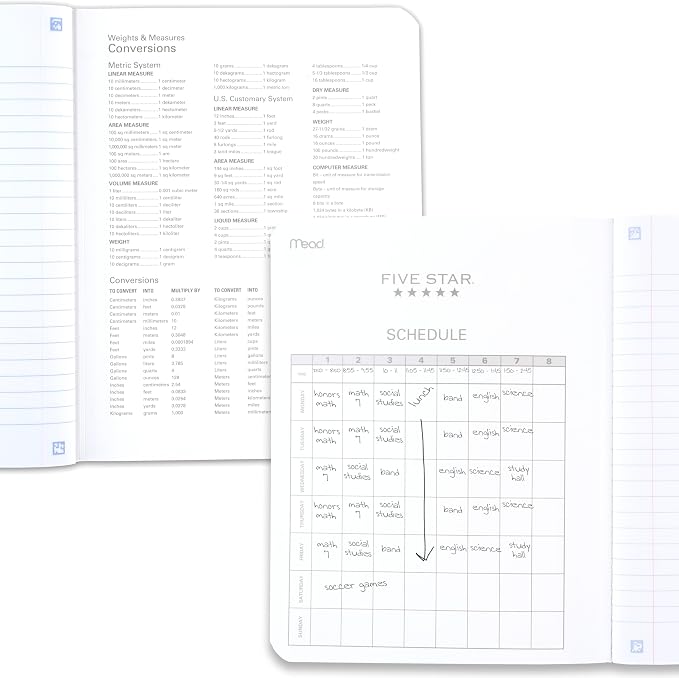 Weights & Measures
Conversions
Metric System
LINEAR MEASURE
10 millimeters 1 centimeter
10 centimeters 1 decimeter
10 decimeters 1 meter
10 meters 1 dekameter
10 dekameters 1 hectometer
10 hectometers 1 kilometer
AREA MEASURE
100 sq millimeters 1 sq centimeter
10,000 sq centimeters 1 sq meter
1,000,000 sq millimeters 1 sq meter
100 sq meters 1 are
100 ares 1 hectare
100 hectares 1 sq kilometer
1,000,000 sq meters 1 sq kilometer
VOLUME MEASURE
1 liter 0.001 cubic meter
10 milliliters 1 centiliter
10 centiliters 1 deciliter
10 deciliters 1 liter
10 liters 1 dekaliter
10 dekaliters 1 hectoliter
10 hectoliters 1 kiloliter
WEIGHT
10 milligrams 1 centigram
10 centigrams 1 decigram
10 decigrams 1 gram
10 grams 1 dekagram
10 dekagrams 1 hectogram
10 hectograms 1 kilogram
1,000 kilograms 1 metric ton
U.S. Customary System
LINEAR MEASURE
12 inches 1 foot
3 feet 1 yard
5-1/2 yards 1 rod
40 rods 1 furlong
8 furlongs 1 mile
3 land miles 1 league
AREA MEASURE
144 sq inches 1 sq foot
9 sq feet 1 sq yard
30-1/4 sq yards 1 sq rod
160 sq rods 1 acre
640 acres 1 sq mile
1 sq mile 1 section
36 sections 1 township
LIQUID MEASURE
2 cups
2 pints
4 quarts
3 teaspoons
4 tablespoons 1/4 cup
5-1/3 tablespoons 1/3 cup
16 tablespoons 1 cup
DRY MEASURE
2 pints 1 quart
8 quarts 1 peck
4 pecks 1 bushel
WEIGHT
27-11/32 grains 1 dram
16 drams 1 ounce
16 ounces 1 pound
100 pounds 1 hundredweight
20 hundredweights 1 ton
COMPUTER MEASURE
Bit - unit of measure for transmission
speed
Byte - unit of measure for storage
capacity
8 bits in a byte
1,024 bytes in a kilobyte (KB)
Conversions
TO CONVERT INTO MULTIPLY BY
Centimeters inches 0.3937
Centimeters feet 0.0328
Centimeters meters 0.01
Centimeters millimeters 10
Feet inches 12
Feet meters 0.3048
Feet miles 0.0001894
Feet yards 0.3333
Gallons pints 8
Gallons liters 3.785
Gallons quarts 4
Gallons ounces 128
Inches centimeters 2.54
Inches feet 0.0833
Inches meters 0.0254
Inches yards 0.0278
Kilograms grams 1,000
TO CONVERT INTO
Kilograms ounces
Kilograms pounds
Kilometers feet
Kilometers meters
Kilometers miles
Kilometers yards
Liters cups
Liters pints
Liters gallons
Liters milliliters
Liters quarts
Meters centimeters
Meters feet
Meters inches
Meters kilometers
Meters miles
Meters millimeters
Mead
FIVE STAR
SCHEDULE
1 2 3 4 5 6 7 8
MONDAY honors math math 7 social studies lunch band english science
TUESDAY honors math math 7 social studies band english science
WEDNESDAY math 7 social studies band english science study hall
THURSDAY honors math math 7 social studies band english science
FRIDAY math 7 social studies band english science study hall
SATURDAY soccer games
SUNDAY